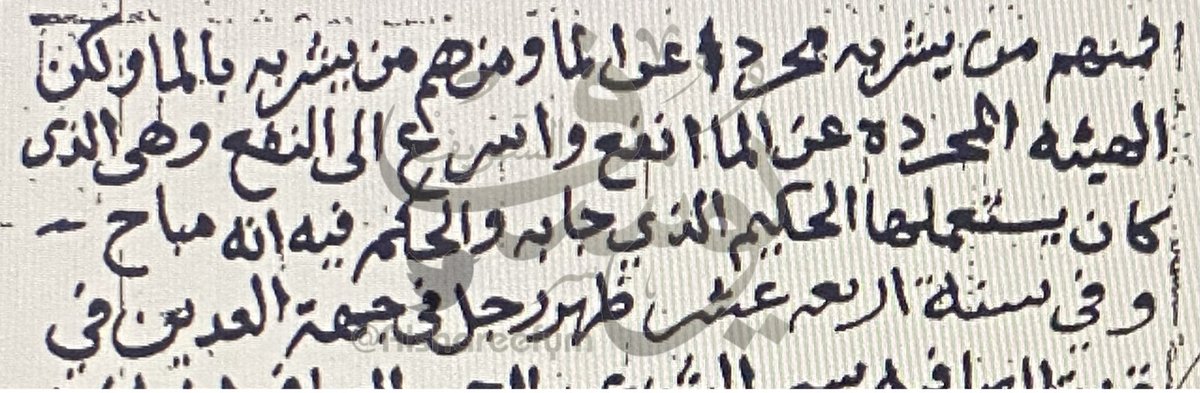 فمنهم من يشربه مجردا عن الما ومنهم من يشربه بالما ولكن
الهيئه المجرده عن الما انفع واسرع الى النفع وهى الذى
كان يستعملها الحكيم الذي جا به والحكم فيه انه مباح
وفي سنة اربعه عشر ظهر رجل في جهة العدين في